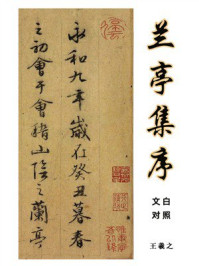 兰亭集序
文白
对照
王羲之
永和九年歲在癸丑暮春
之初會于會稽山陰之蘭亭